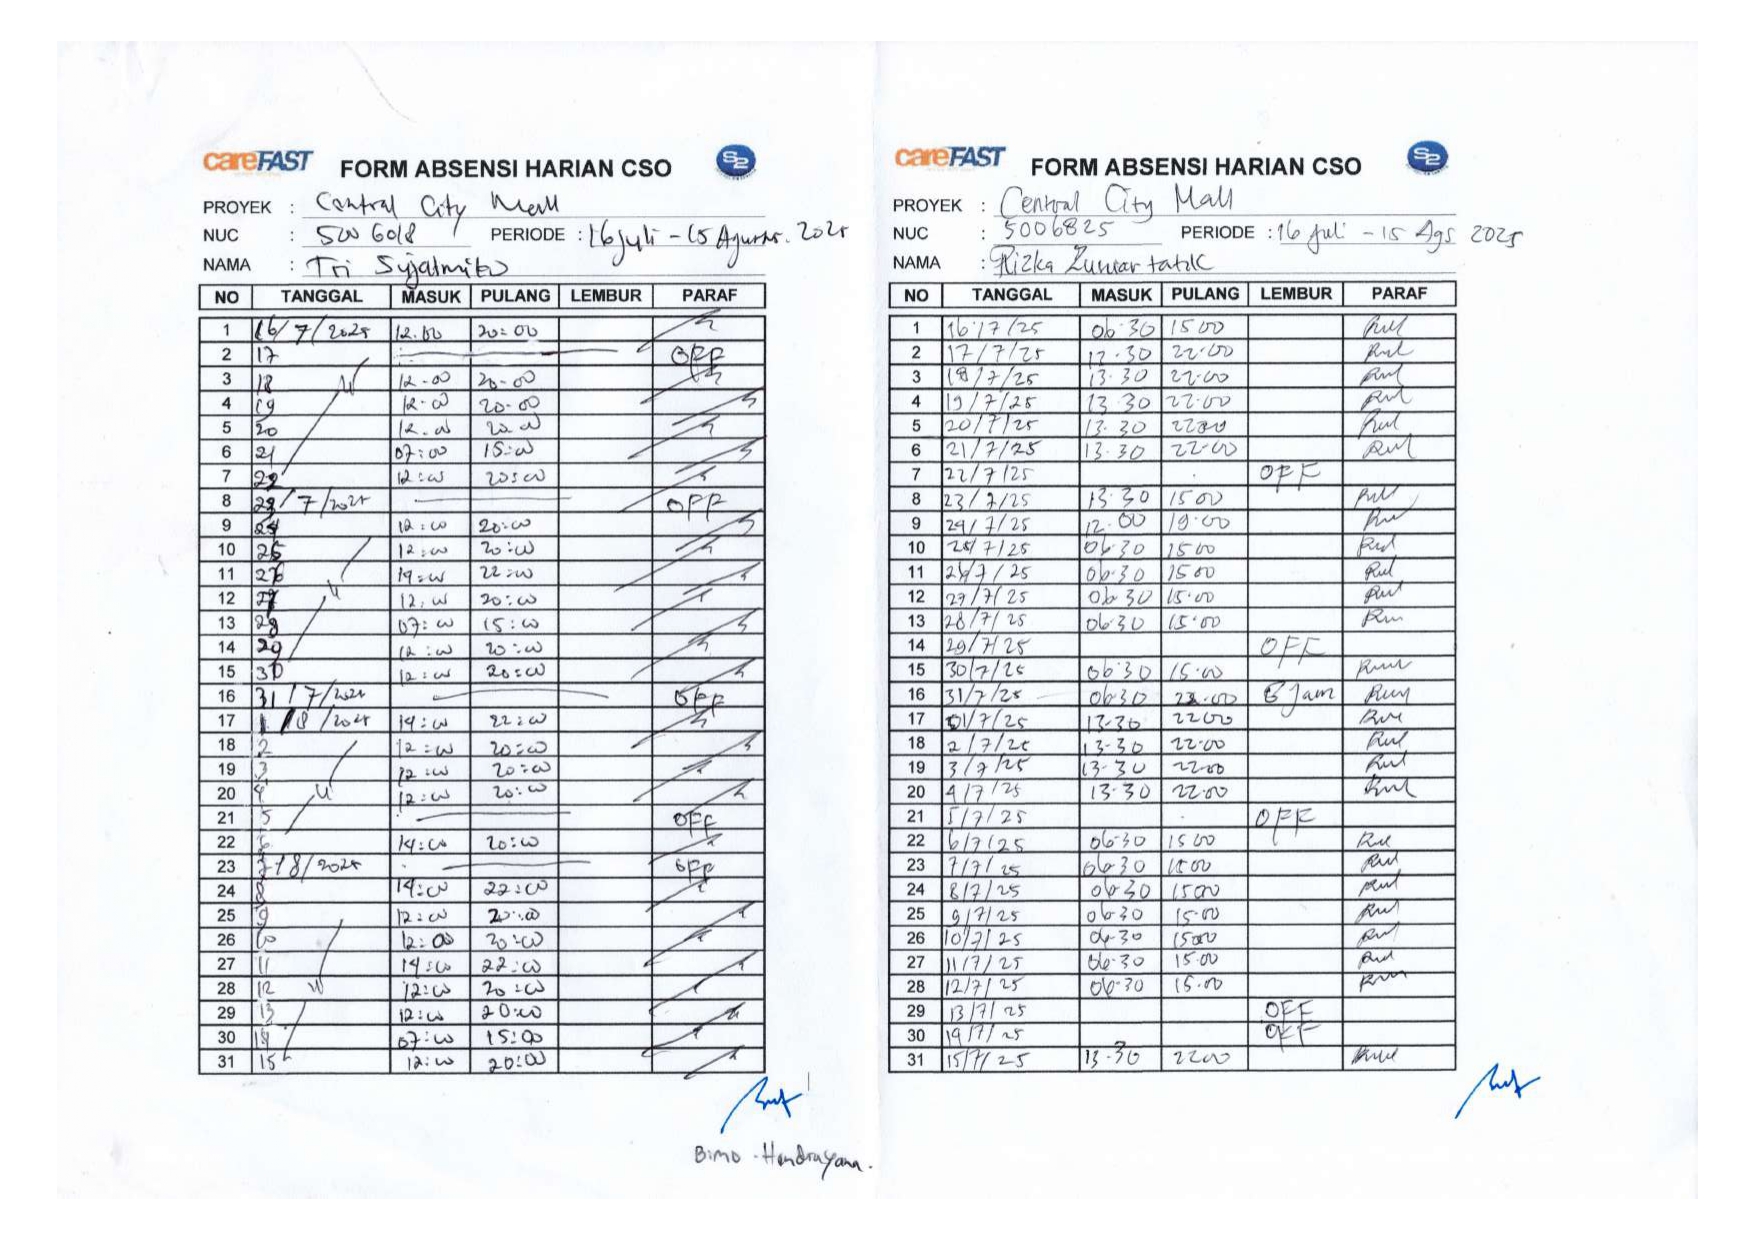 careFAST FORM ABSENSI HARIAN CSO S2
PROYEK : Central City Mall
NUC : 5006018 PERIODE : 16 Juli - 15 Agustus. 2025
NAMA : Tri Sujatmiko
NO TANGGAL MASUK PULANG LEMBUR PARAF
1 16/7/2025 12.00 20:00
2 17 OFF
3 18 12-00 20-00
4 19 12-00 20-00
5 20 12.00 20.00
6 21 07:00 15:00
7 22 12:00 20:00
8 23/7/2025 OFF
9 24 12:00 20:00
10 25 12:00 20:00
11 26 14:00 22:00
12 27 12:00 20:00
13 28 07:00 15:00
14 29 12:00 20:00
15 30 12:00 20:00
16 31/7/2025 OFF
17 1/8/2025 14:00 22:00
18 2 12:00 20:00
19 3 12:00 20:00
20 4 12:00 20:00
21 5 OFF
22 6 14:00 20:00
23 7/8/2025 OFF
24 8 14:00 22:00
25 9 12:00 20:00
26 10 12:00 20:00
27 11 14:00 22:00
28 12 12:00 20:00
29 13 12:00 20:00
30 14 07:00 15:00
31 15 12:00 20:00
Bimo - Hendrayana.
careFAST FORM ABSENSI HARIAN CSO S2
PROYEK : Central City Mall
NUC : 5006825 PERIODE : 16 Juli - 15 Ags 2025
NAMA : Rizka
NO TANGGAL MASUK PULANG LEMBUR PARAF
1 16/7/25 06.30 15 00
2 17/7/25 13.30 22-00
3 18/7/25 13.30 22-00
4 19/7/25 13 30 22-00
5 20/7/25 13.30 2200
6 21/7/25 13.30 22-00
7 22/7/25 OFF
8 23/7/25 13.30 15 00
9 24/7/25 12.00 19.00
10 25/7/25 06.30 15 00
11 26/7/25 06-30 15 00
12 27/7/25 06 30 15.00
13 28/7/25 06.30 15.00
14 29/7/25 OFF
15 30/7/25 06.30 15.00
16 31/7/25 0630 22.00 8 Jam
17 01/7/25 13-30 2200
18 2/7/25 13-30 22.00
19 3/7/25 13-30 2200
20 4/7/25 13-30 22.00
21 5/7/25 OFF
22 6/7/25 06-30 15 00
23 7/7/25 0630 1500
24 8/7/25 0630 1500
25 9/7/25 0630 15-00
26 10/7/25 06-30 1500
27 11/7/25 06-30 15.00
28 12/7/25 06-30 15.00
29 13/7/25 OFF
30 14/7/25 OFF
31 15/7/25 13-30 2200